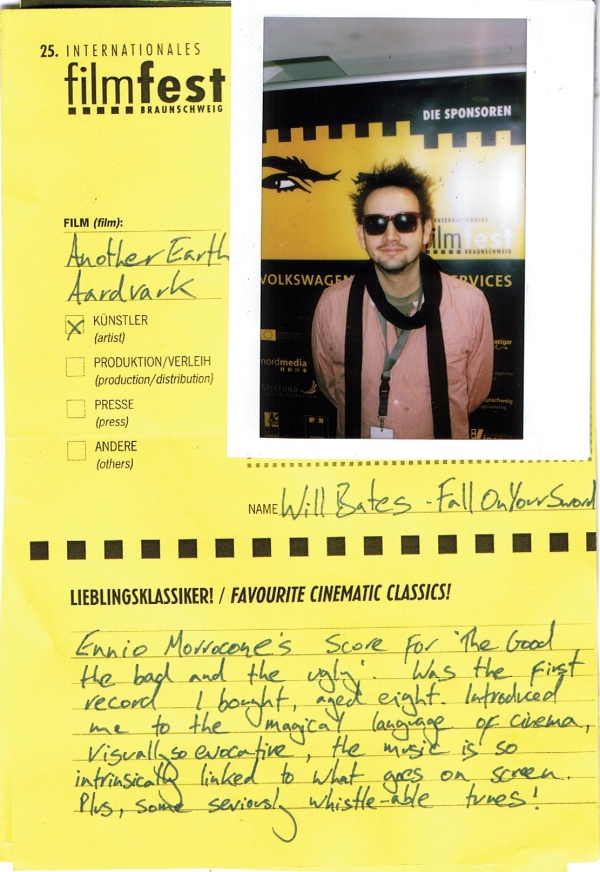 25. INTERNATIONALES
filmfest
BRAUNSCHWEIG
DIE SPONSOREN
INTERNATIONALES
filmfest
BRAUNSCHWEIG
VOLKSWAGEN
SERVICES
nordmedia
STIFTUNG
FILM (film):
Another Earth
Aardvark
X KÜNSTLER
(artist)
PRODUKTION/VERLEIH
(production/distribution)
PRESSE
(press)
ANDERE
(others)
NAME Will Bates - Fall On Your Sword
LIEBLINGSKLASSIKER! / FAVOURITE CINEMATIC CLASSICS!
Ennio Morrocone's score for 'The Good
the bad and the ugly'. Was the first
record I bought, aged eight. Introduced
me to the magical language of cinema,
Visually so evocative, the music is so
intrinsically linked to what goes on screen.
Plus, some seriously whistle-able tunes!